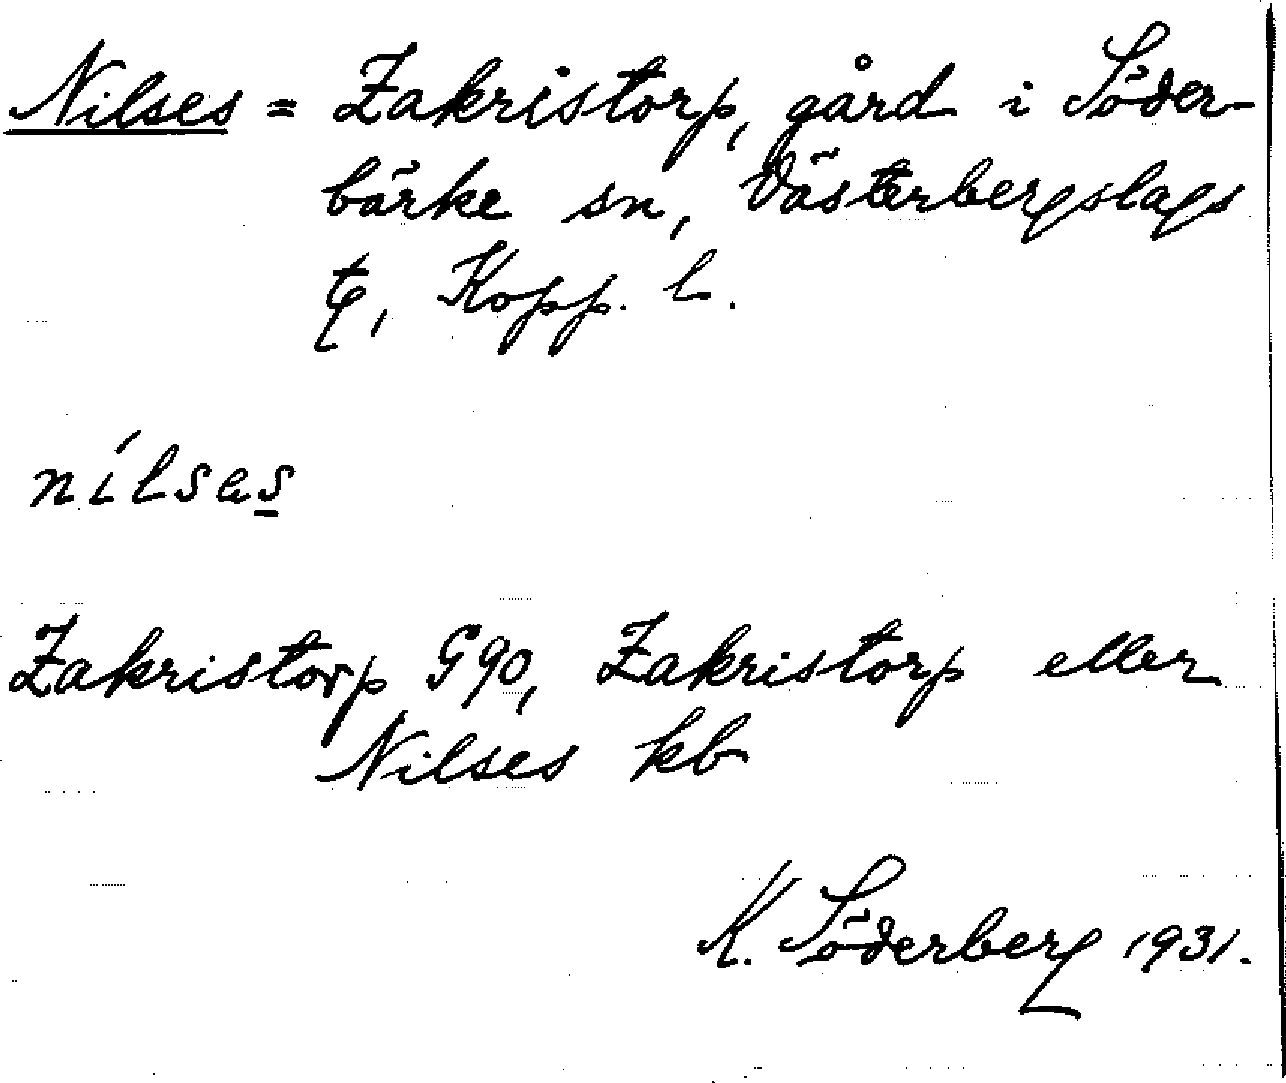 Nilses = Zakristorp, gård i Söder-
bärke sn, Västerbergslags
tg, Kopp. l.
nílsəs
Zakristorp G90, Zakristorp eller
Nilses kb
K. Söderberg 1931.